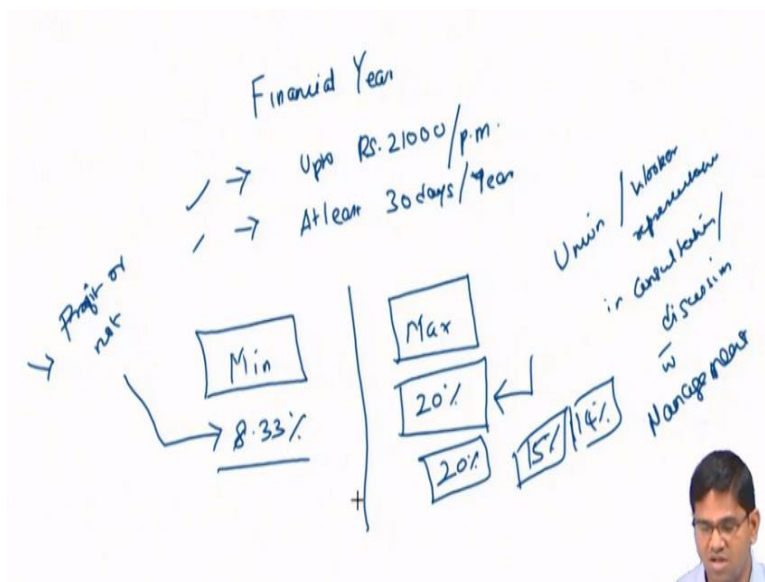 Financial Year
→ Upto Rs. 21000/p.m.
→ Atleast 30 days/Year
Profit or
not
Min
8.33%
Max
20%
20% 15% 14%
Union / Worker
representatives
in consultation/
discussion
w
Management